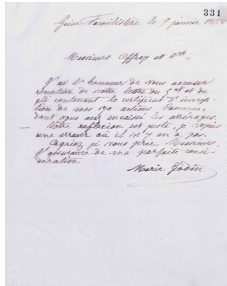 331
Guise Familistère le 9 janvier
Messieurs Offroy et Cie
J'ai l'honneur de vous accuser
réception de votre lettre du 5 et et du
pli contenant le certificat d'inscrip
tion de nos 170 actions
dont vous avez encaissé les arrérages.
Votre réflexion est juste, je
une erreur où il n'y en a pas.
Agréez je vous prie, Messieurs,
l'assurance de ma parfaite consi
dération
Marie Godin